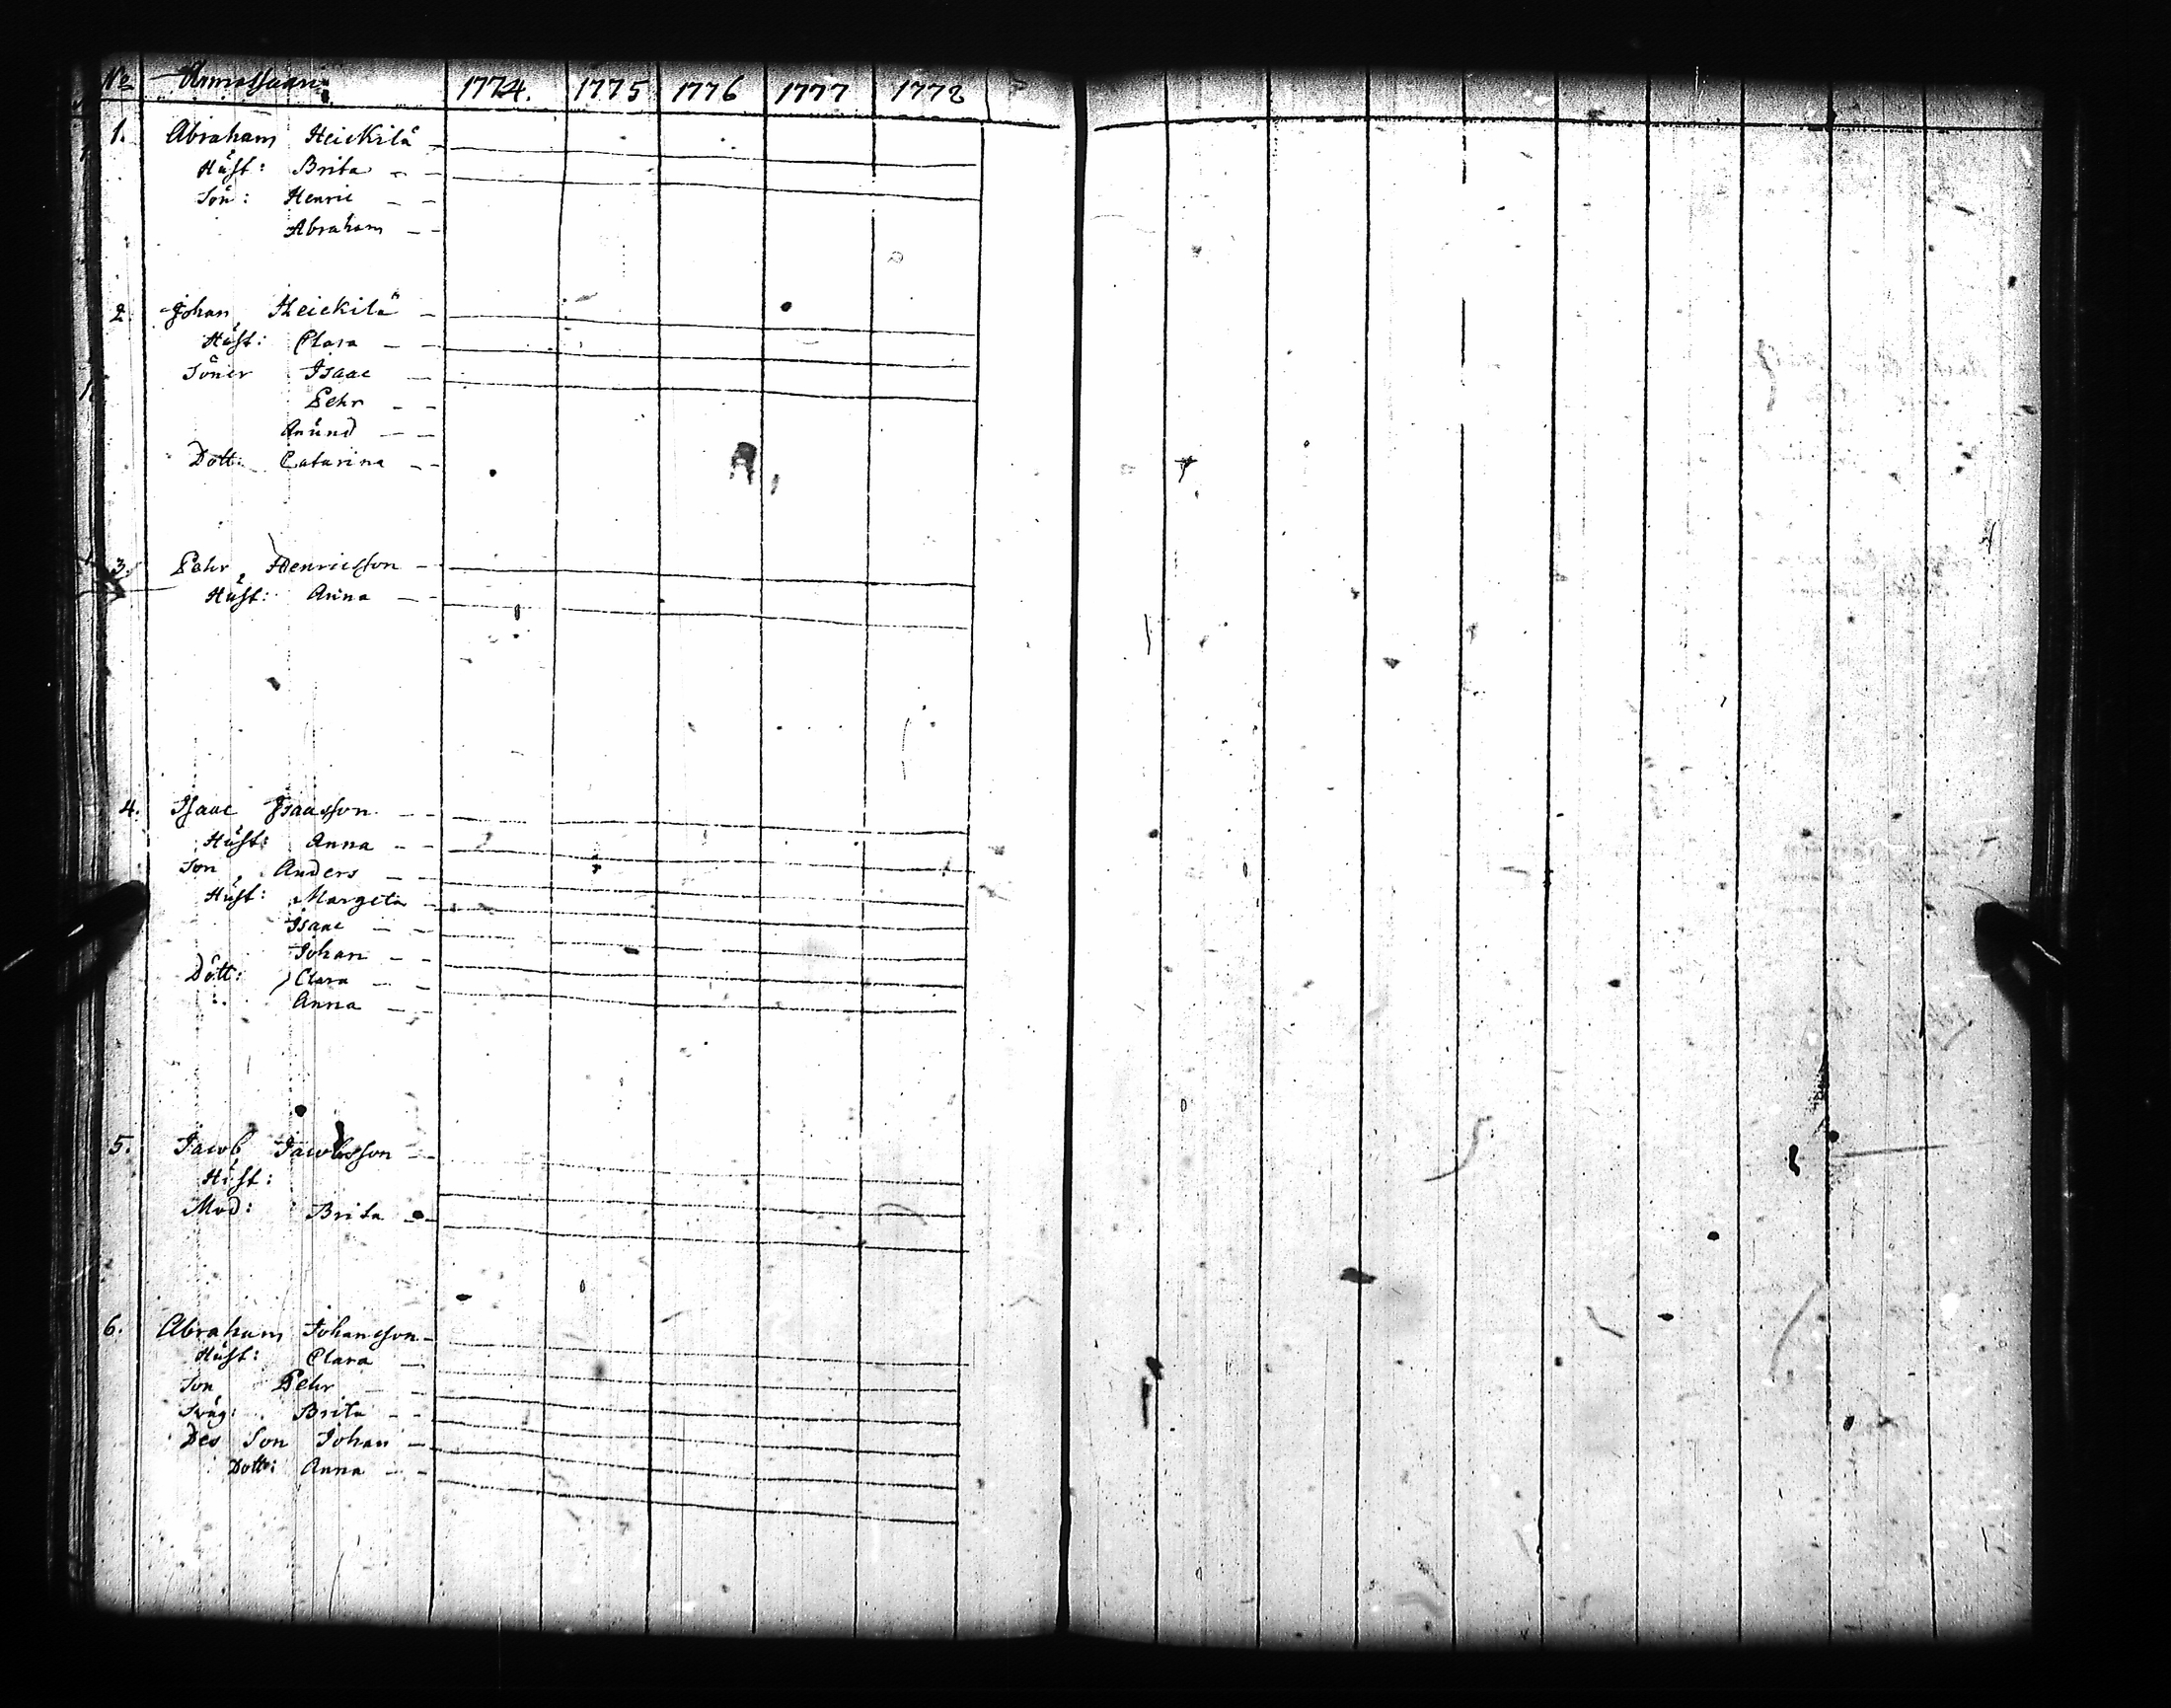 No Armassaari 1774. 1775 1776 1777 1772
1. Abraham Heickilä
Hust: Brita
Son: Henric
Abraham
2. Johan Heickilä
Hust: Clara
Söner Isaac
Pehr
Anund
Dott: Catarina
3. Pehr Henricsson
Hust: Anna
4. Isaac Isaacsson
Hust: Anna
Son Anders
Hust: Margeta
Isaac
Johan
Dött: Clara
Anna
5. Jacob Jacobsson
Hust:
Mod: Brita
6. Abraham Johansson
Hust: Clara
Son Pehr
Swäg: Brita
Des Son Johan
Dott: Anna